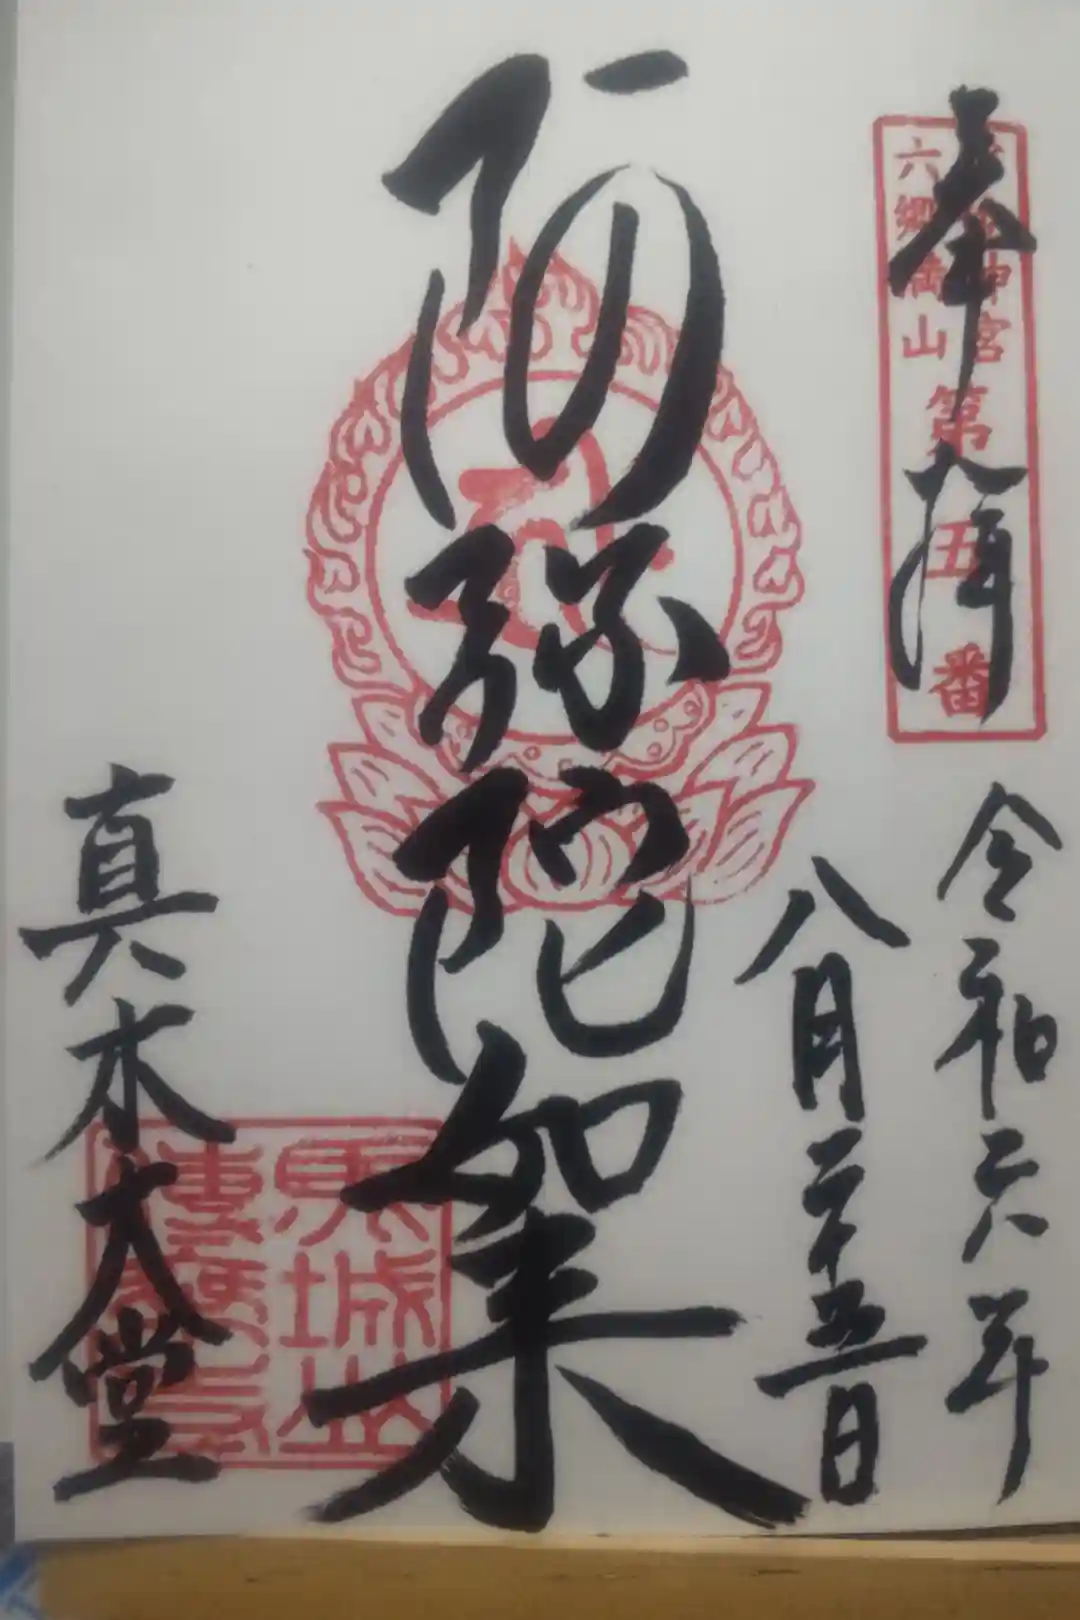 奉拝
神宮
六郷満山
第五番
令和六年
八月二十五日
阿弥陀如来
真木大堂